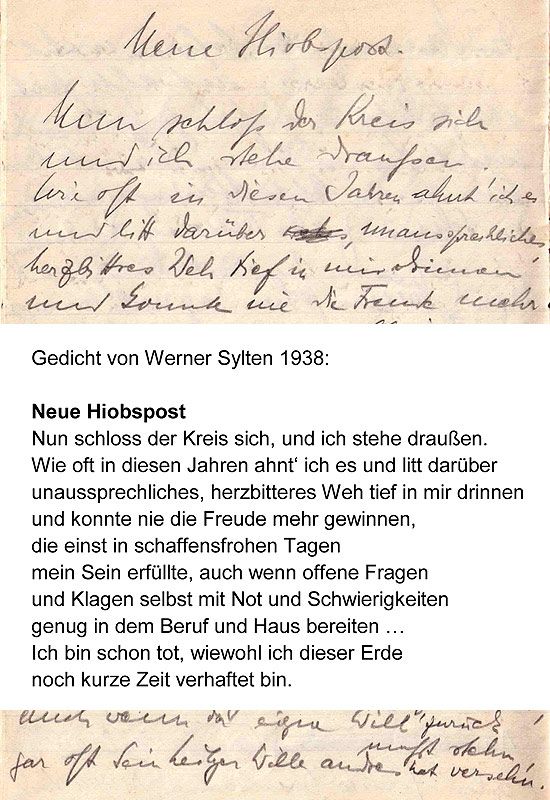 Neue Hiobspost.
Nun schloß der Kreis sich
und ich stehe draußen.
Wie oft in diesen Jahren ahnt' ich es
und litt darüber unaussprechliches,
herzbittres Weh tief in mir drinnen
und konnte nie die Freude mehr
Gedicht von Werner Sylten 1938:
Neue Hiobspost
Nun schloss der Kreis sich, und ich stehe draußen.
Wie oft in diesen Jahren ahnt‘ ich es und litt darüber
unaussprechliches, herzbitteres Weh tief in mir drinnen
und konnte nie die Freude mehr gewinnen,
die einst in schaffensfrohen Tagen
mein Sein erfüllte, auch wenn offene Fragen
und Klagen selbst mit Not und Schwierigkeiten
genug in dem Beruf und Haus bereiten …
Ich bin schon tot, wiewohl ich dieser Erde
noch kurze Zeit verhaftet bin.
auch wenn der eigne Will' zurück
muß stehn
gar oft Sein heilger Wille andres hat versehn.